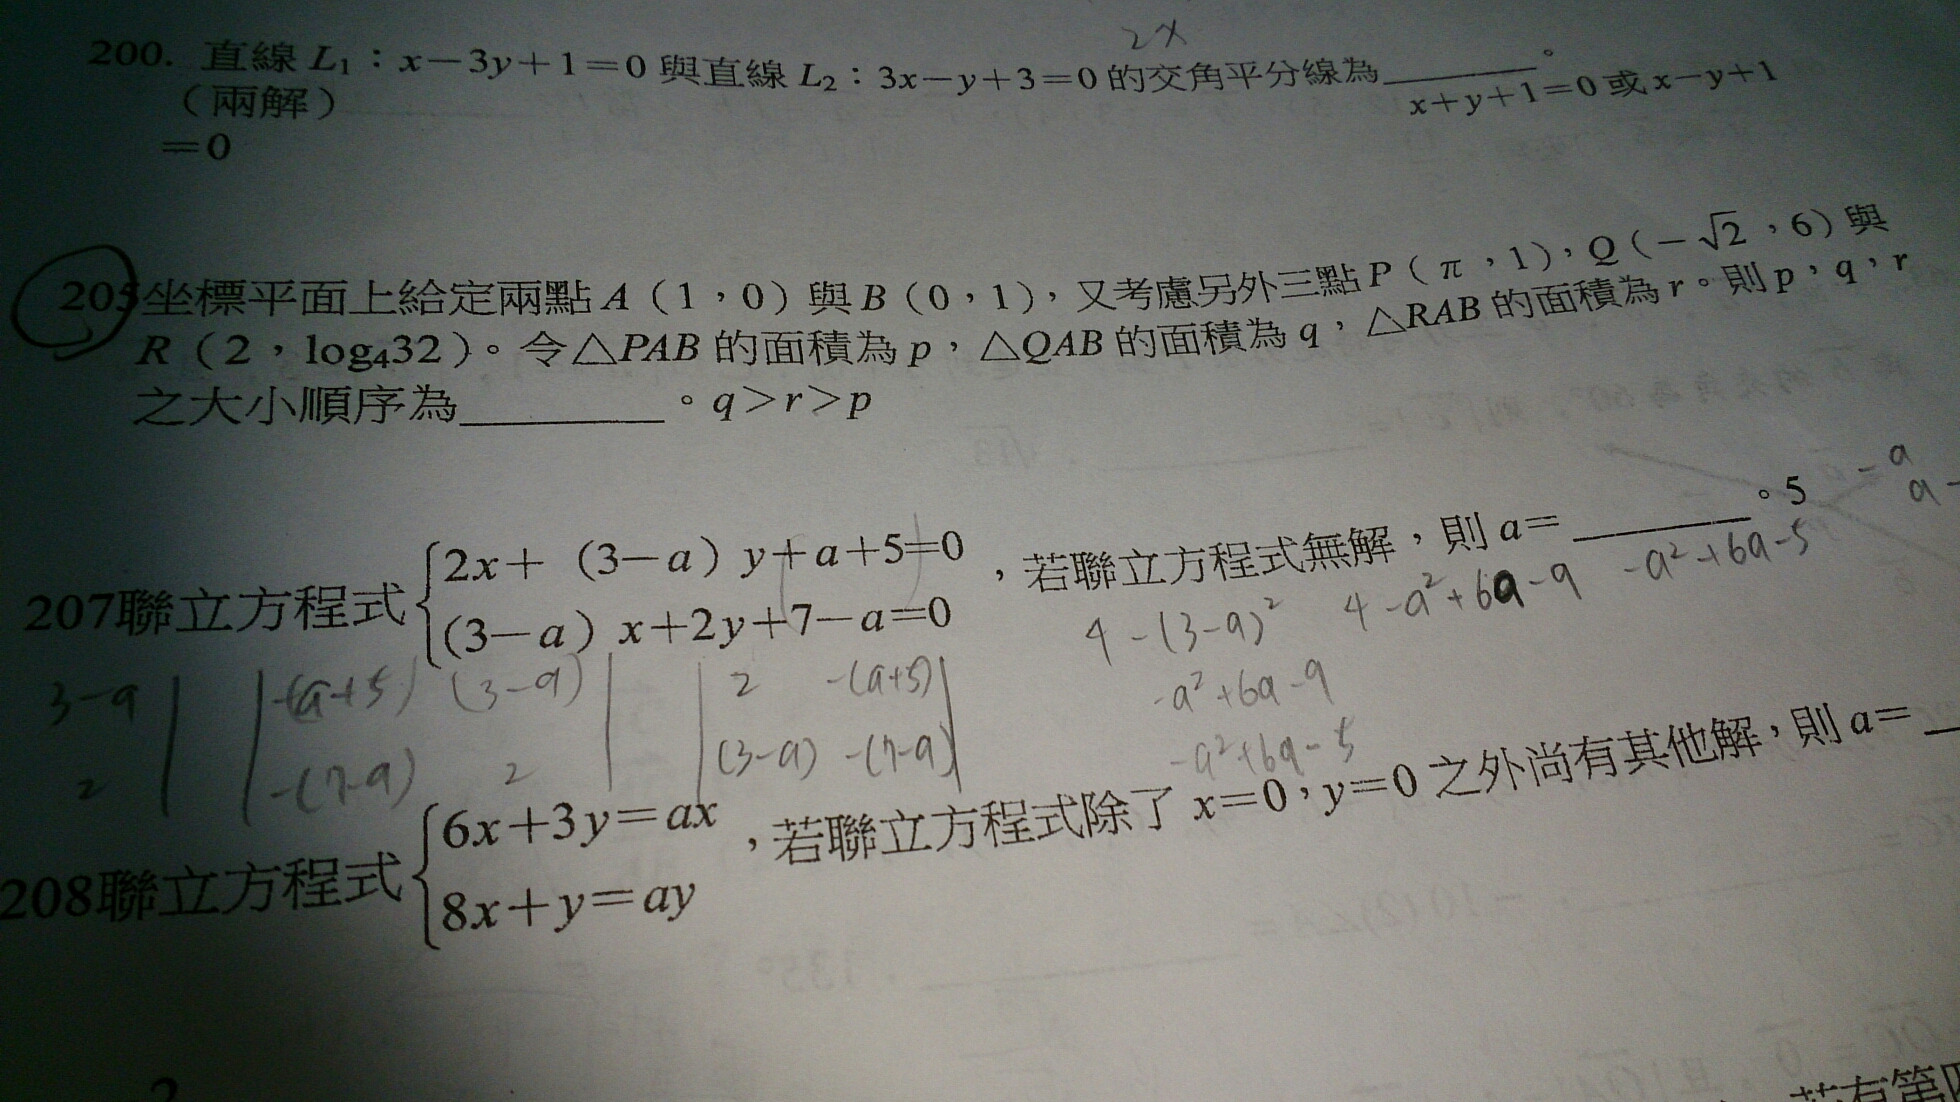 2x
200. 直線 L₁：x－3y＋1＝0 與直線 L₂：3x－y＋3＝0 的交角平分線為________。
（兩解） x＋y＋1＝0 或 x－y＋1
＝0
205坐標平面上給定兩點 A（1，0）與 B（0，1），又考慮另外三點 P（π，1），Q（－√2，6）與
R（2，log₄32）。令△PAB 的面積為 p，△QAB 的面積為 q，△RAB 的面積為 r。則 p，q，r
之大小順序為________。q＞r＞p
-a
a-
207聯立方程式{2x＋（3－a）y＋a＋5＝0 ，若聯立方程式無解，則 a＝________。5
(3－a）x＋2y＋7－a＝0
4-(3-a)² 4-a²+6a-9 -a²+6a-5
3-a | | -(a+5) (3-a) | | 2 -(a+5) | -a²+6a-9
2 | | -(7-a) 2 | | (3-a) -(7-a) | -a²+6a-5
208聯立方程式{6x＋3y＝ax ，若聯立方程式除了 x＝0，y＝0 之外尚有其他解，則 a＝
8x＋y＝ay
2
若有第四